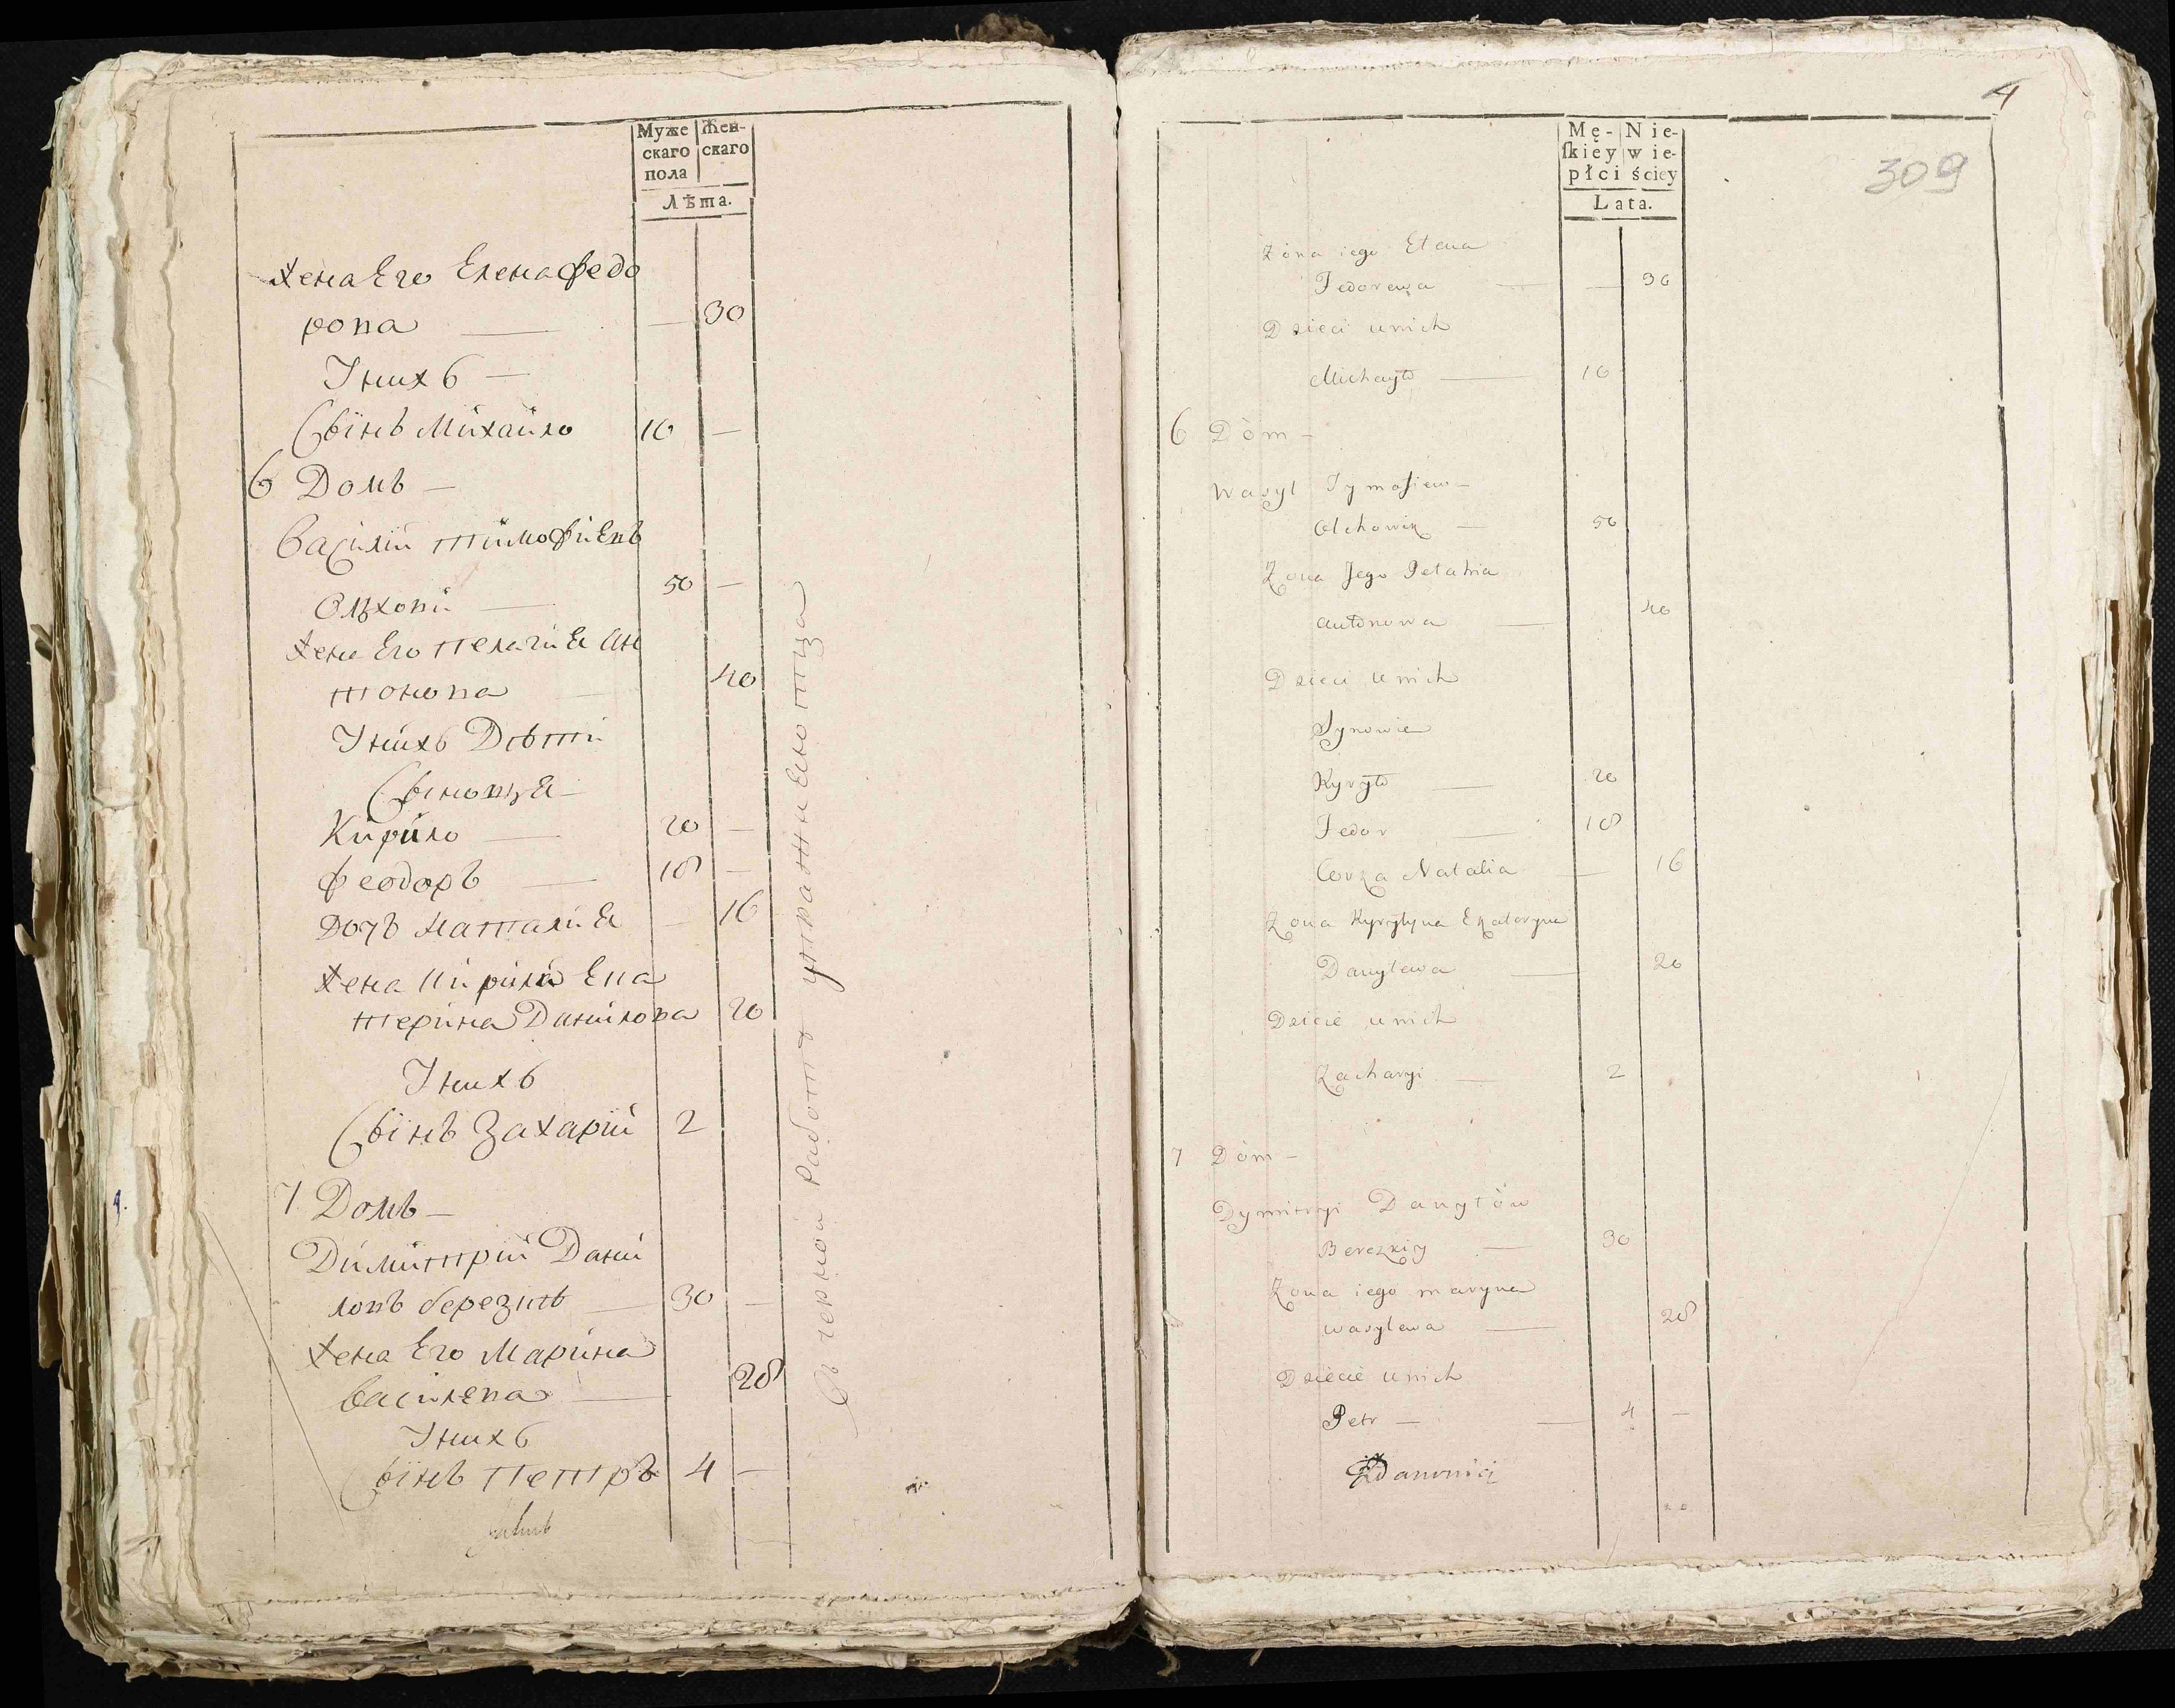 Муже
скаго
пола
Жен-
скаго
Лѣта.
Жена Его Елена Федо
рова — — 30
У нихъ —
Сынъ Михайло 10 —
6 Домъ —
Василій Тимофіевъ
Ольховій — 50 —
Жена Его Пелагиѧ Ан
тонова — 40
У нихъ Дѣти
Сыновья —
Кирило — 20 —
Феодоръ — 18 —
Дочь Наталиѧ — 16
Жена Кирила Ека
терина Данилова 20
У нихъ
Сынъ Захарій 2
7 Домъ —
Димитрій Дани
ловъ Березкій — 30 —
Жена Его Марина
Василева — 28
У нихъ
Сынъ Петръ 4 —
Въ черной работѣ упражнѧютца
4
309
Mę-
skiey
płci
Nie-
wie-
ściey
Lata.
Żona iego Elena
Fedorewa — — 30
Dzieci u nich
Michayło — 10
6 Dóm —
Wasyl Tymofiew —
Olchowik — 50
Żona Jego Pelahia
Antonowa — 40
Dzieci u nich
Synowie
Kyryło — 20
Fedor — 18
Corka Natalia — 16
Żona Kyryłyna Ekateryna
Danylewa — 20
Dziecie u nich
Zacharyi — 2
7 Dóm —
Dymitryi Danylów
Berezkiy — 30
Żona iego Maryna
Wasylewa — 28
Dziecie u nich
Petr — — 4 —